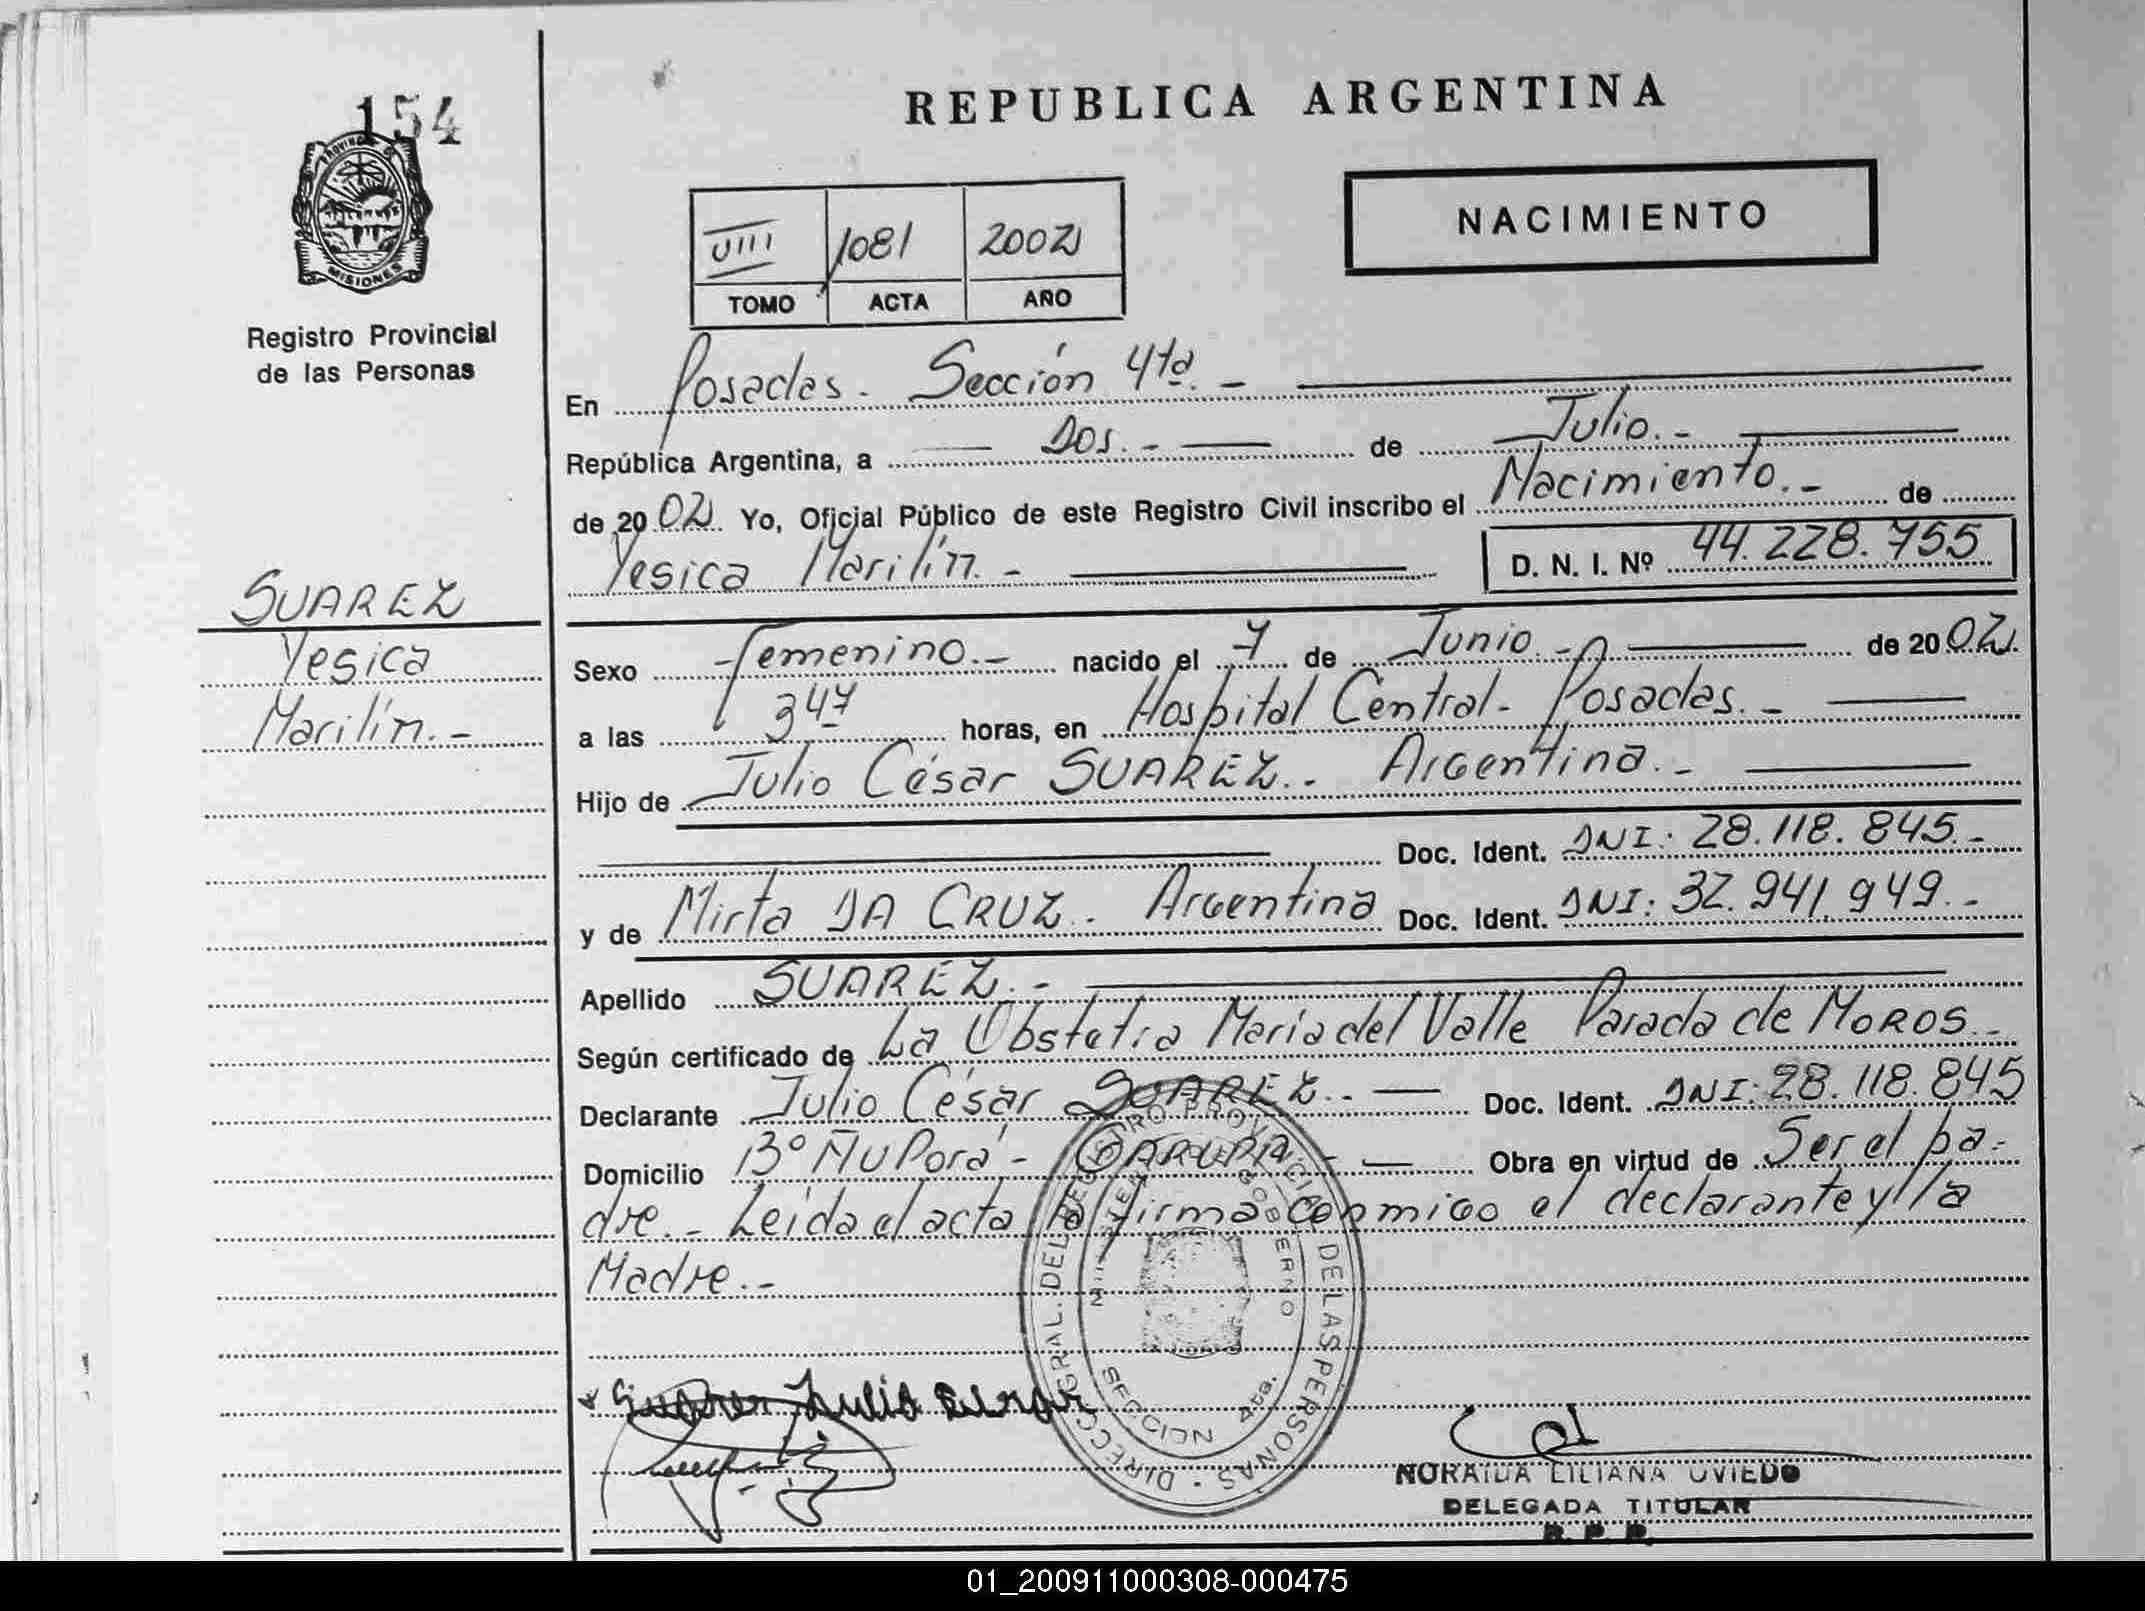 154
PROVINCIA DE
MISIONES
Registro Provincial
de las Personas
REPUBLICA ARGENTINA
NACIMIENTO
VIII 1081 2002
TOMO ACTA AÑO
En Posadas. Sección 4ta. -
República Argentina, a Dos. - de Julio. -
de 2002 Yo, Oficial Público de este Registro Civil inscribo el Nacimiento. - de
Yesica Marilín. - D. N. I. Nº 44.228.755
SUAREZ
Yesica
Marilín. -
Sexo Femenino. - nacido el 7 de Junio. - de 2002.
a las 347 horas, en Hospital Central - Posadas. -
Hijo de Julio César SUAREZ. - Argentina. -
Doc. Ident. DNI: 28.118.845. -
y de Mirta DA CRUZ. - Argentina Doc. Ident. DNI: 32.941.949. -
Apellido SUAREZ. -
Según certificado de La Obstetra María del Valle Parada de MOROS. -
Declarante Julio César SUAREZ. - Doc. Ident. DNI: 28.118.845
Domicilio Bº Ñu Porá - GARUPA - Obra en virtud de Ser el pa-
dre. - Leída el acta la firma conmigo el declarante y la
Madre. -
DIRECC. GRAL. DEL REGISTRO PROVINCIAL DE LAS PERSONAS -
GOBIERNO
SECCION 4ta.
Suarez Julio Cesar
NORAIDA LILIANA OVIEDO
DELEGADA TITULAR
R. P. P.
01_200911000308-000475